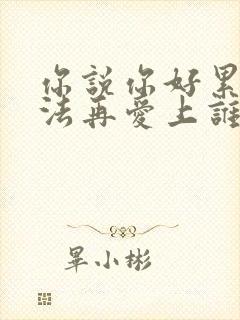 你說你好累
法再愛上誰
畢小彬